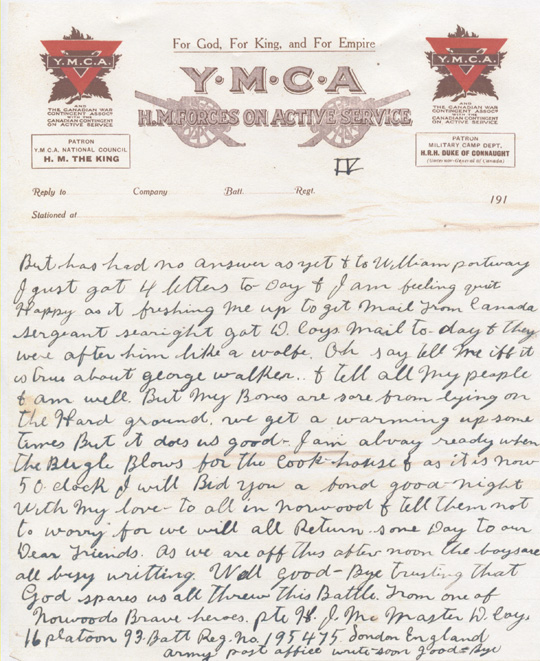 For God, For King, and For Empire
Y.M.C.A.
Y·M·C·A
Y.M.C.A.
H.M. FORCES ON ACTIVE SERVICE
AND
THE CANADIAN WAR
CONTINGENT ASSOCT
WITH THE
CANADIAN CONTINGENT
ON ACTIVE SERVICE
AND
THE CANADIAN WAR
CONTINGENT ASSOCT
WITH THE
CANADIAN CONTINGENT
ON ACTIVE SERVICE
PATRON
Y.M.C.A. NATIONAL COUNCIL
H. M. THE KING
PATRON
MILITARY CAMP DEPT.
H.R.H. DUKE OF CONNAUGHT
(Governor-General of Canada)
IV
Reply to Company Batt. Regt. 191
Stationed at
But has had no answer as yet & to William portway
I just got 4 letters to Day & I am feeling quit
Happy as it bushing me up to git Mail From Canada
sergeant searight got D. Coys Mail to-day & they
were after him like a wolfe. Oh say tell Me iff it
is true about george walker.. & tell all My people
I am well. But My Bones are sore from lying on
the Hard ground. we get a warming up some
times But it does us good- I am alway ready when
the Bugle Blows for the Cook-house & as it is now
5 O-clock I will Bid you a fond good-night
With My love- to all in Norwood & tell them not
to worry for we will all Return some Day to our
Dear Friends. As we are off this after noon the boys are
all busy writting. Well good-Bye trusting that
God spares us all threw this Battle. From one of
Norwoods Brave heroes. pte H. J. Mc Master D. Coys
16 platoon 93. Batt Reg. No. 195475 London England
army post office write soon good-Bye